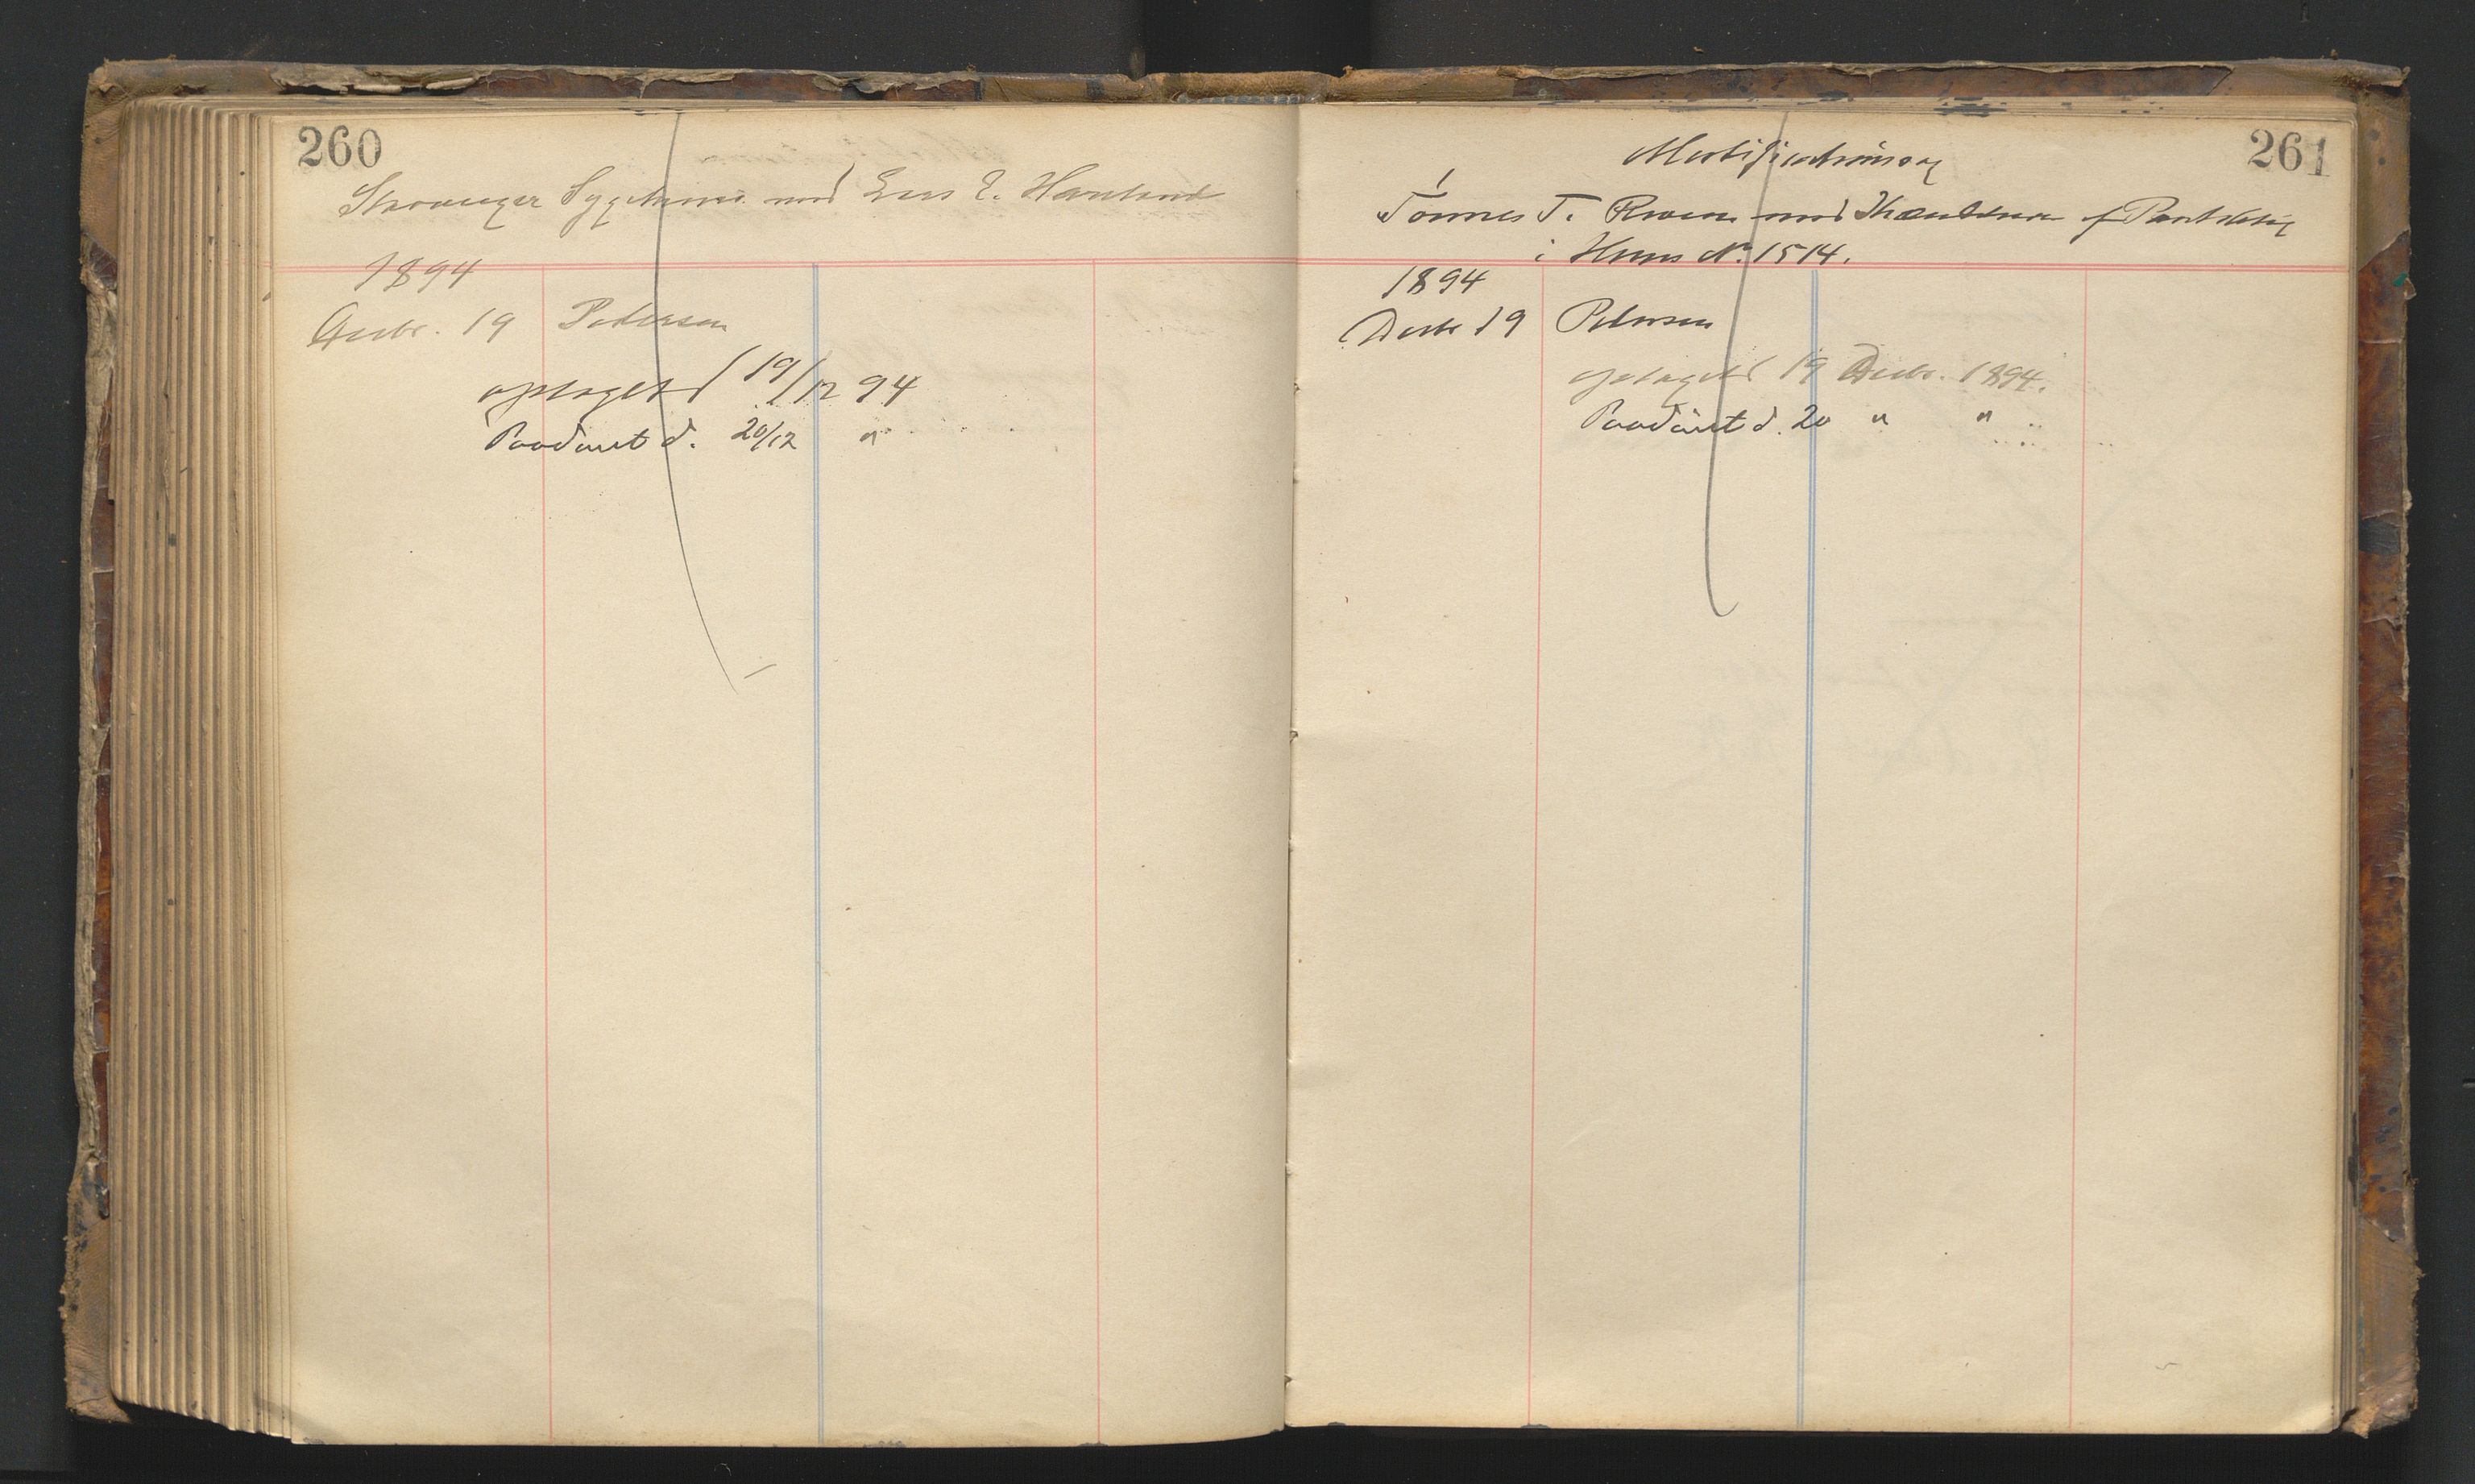 260
Stavanger Sygehus mod Lars E. Haaland
1894
Decbr. 19 Pedersen
optaget d 19/12 94
Paadømt d. 20/12 "
261
Mortifikationssag
Tønnes T. mod Ihændehav. af Panteobl.
i Huus No. 1514.
1894
Decbr 19 Pedersen
optaget d 19 Decbr. 1894.
Paadømt d. 20 " "